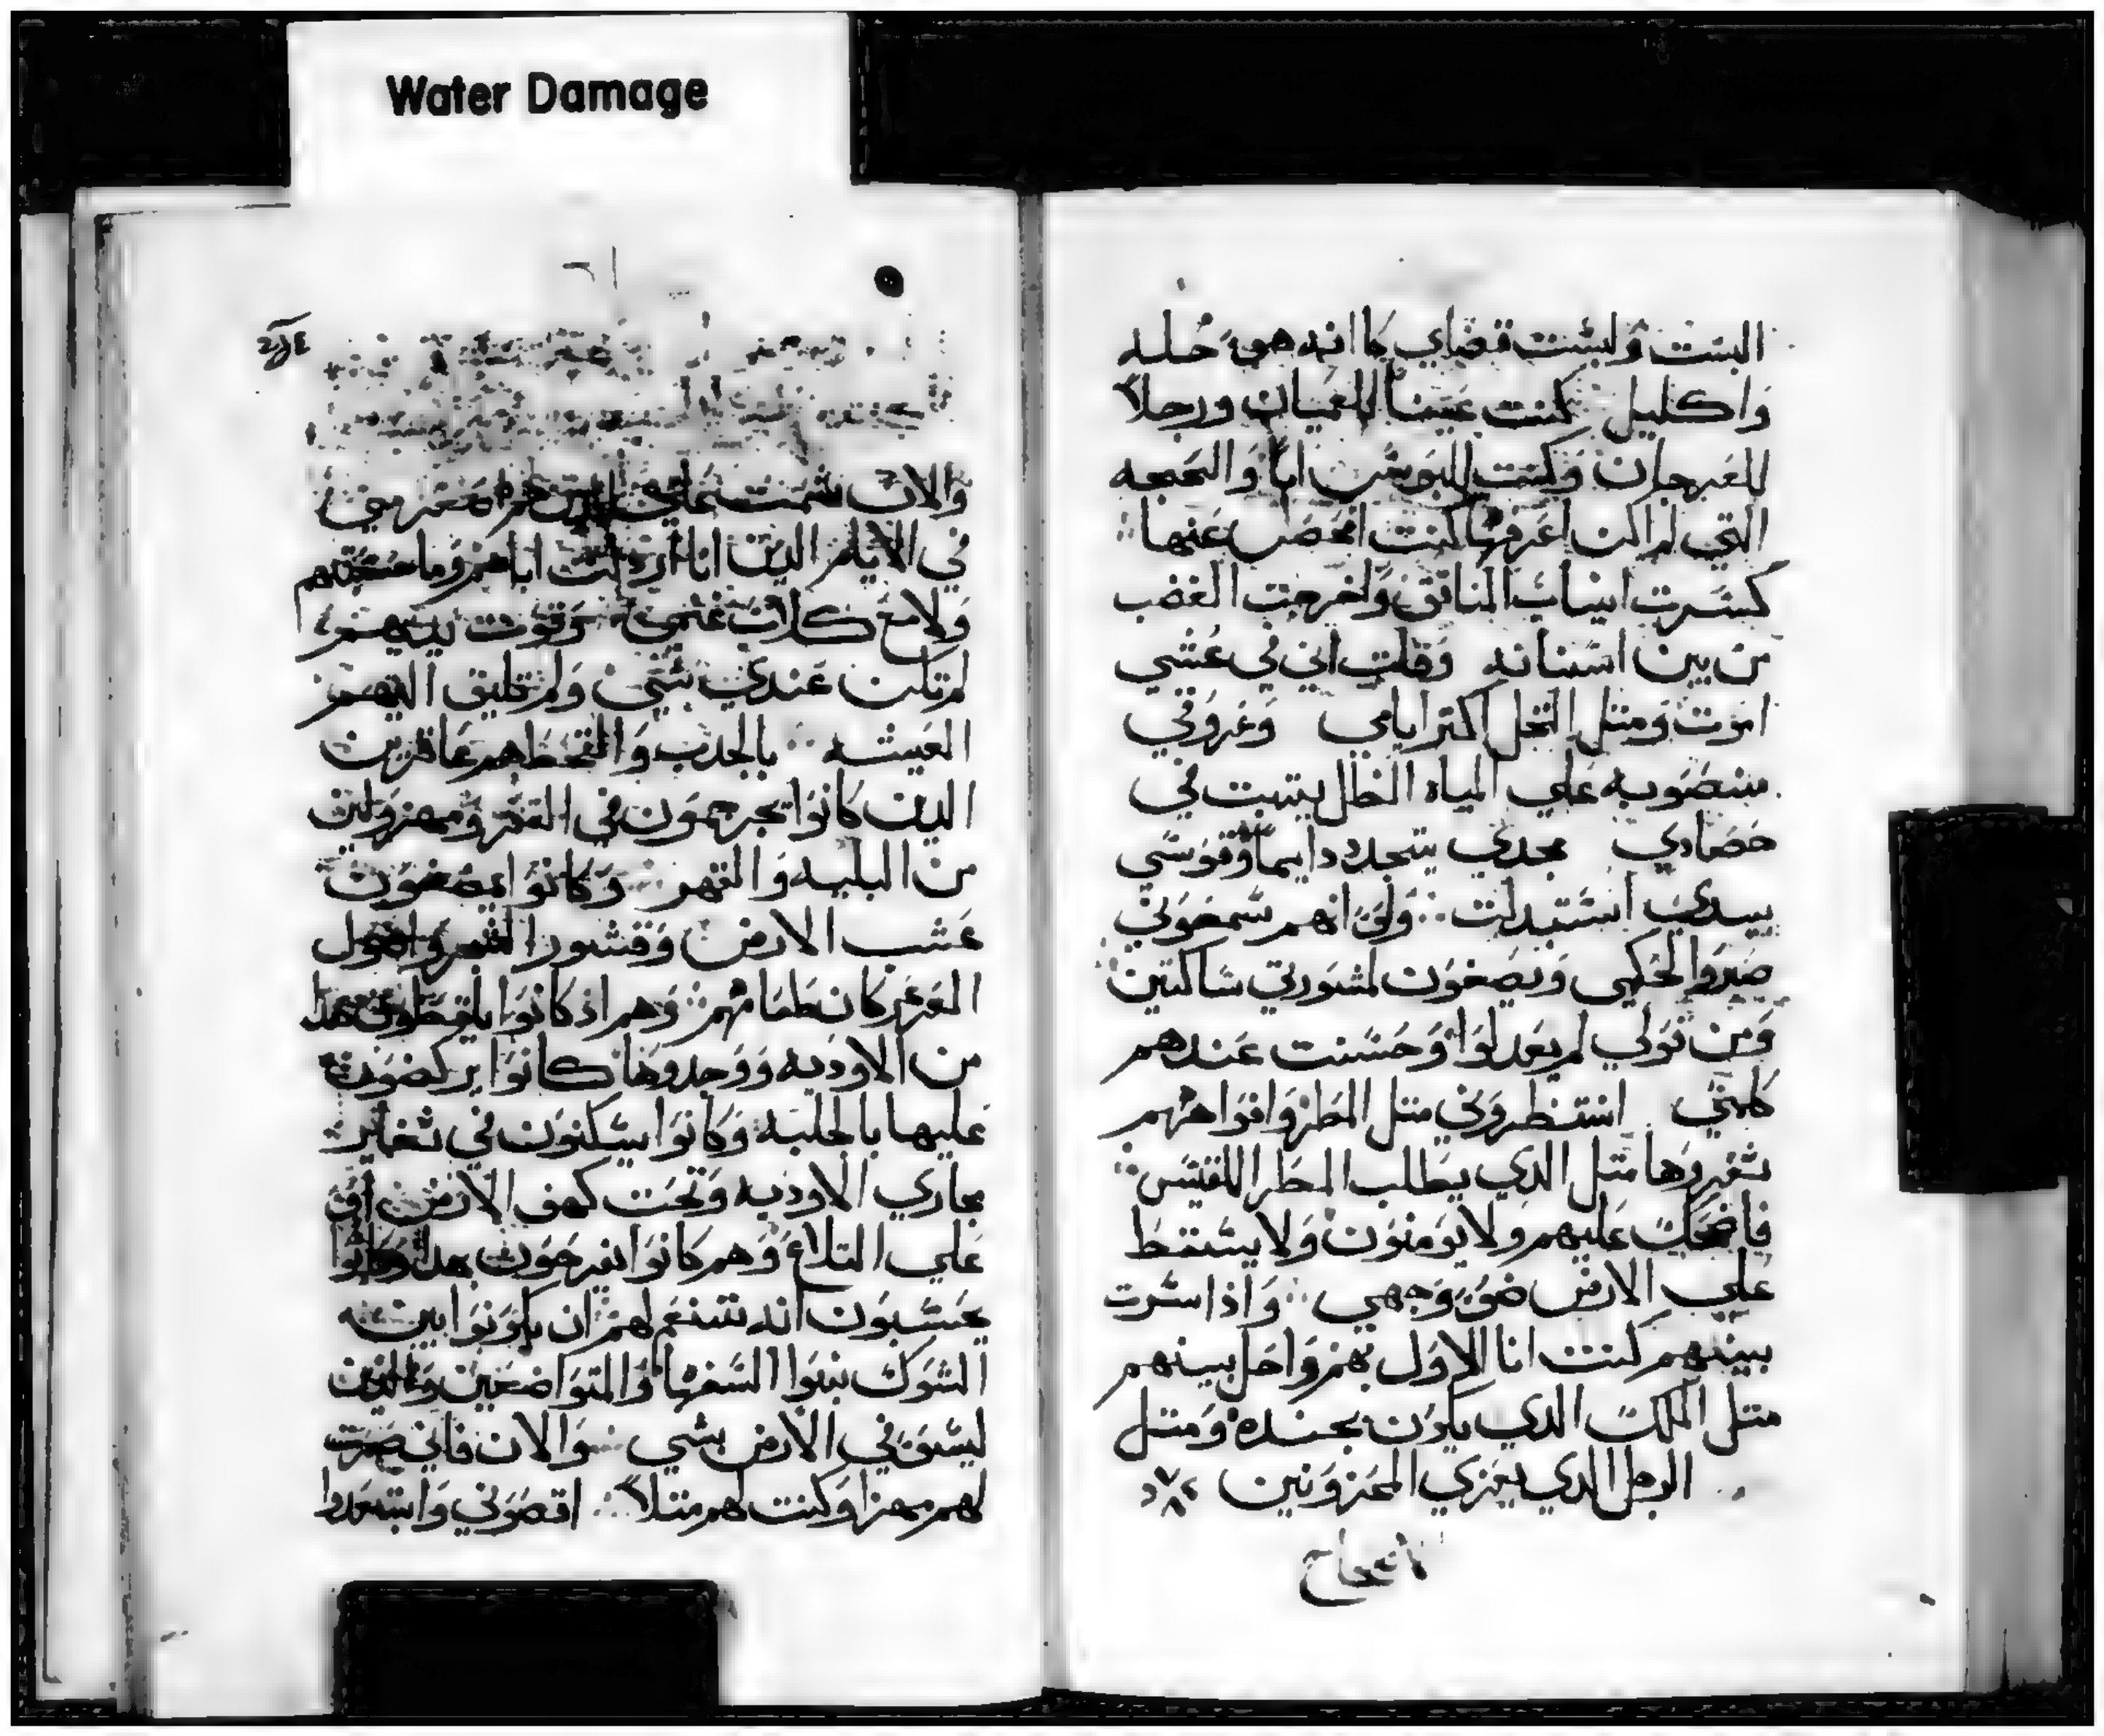 Water Damage
البست ولبست قضاي كاانه هو حله
واكليل كنت عينا للعميان ورجلا
للعرجان وكنت للبوسا ابا والحجه
التي لم اكن اعرفها كنت افحص عنها
كسرت انياب المنافق واخرجت الغضب
من بين اسنانه وقلت اني في عشي
اموت ومتل النخل اكتر ايامي وعروقي
منصوبه علي المياه الظل يتبت في
حصادي مجدي يتجدد دايما وقوسي
بيدي استبدلت ولي انهم سمعوني
صبروا لحكمي ويصغون لمشورتي ساكتين
ومن قولي لم يعدلوا وحسنت عندهم
كلمتي استنظروني متل المطر وافواههم
تغروها متل الدي يطلب المطر اللقيس
فاضحك عليهم ولا يومنون ولا يسقط
علي الارض ضو وجهي واذا سرت
بينهم كنت انا الاول بهم واحل بينهم
متل الملك الدي يكون بجنده ومتل
الرجل الدي يعزي المحزونين
والان
في الايام الدين انا اردلت اباهم وما حسبتهم
ولا مع كلاب غنمي وقوت يديهم
لم تكن عندي بشي ولم تليق اليهم
العيشه بالجدب والقحط هم عاقرين
الدين كانوا يجرهمون في القفر ومهزولين
من البليه والقهر وكانوا يمضغون
عشب الارض وقشور الشجر واصول
العرعر كان طعامهم وهم اذ كانوا يلقطون هدا
من الاوديه ووجدوها كانوا يركضون
عليها بالجلبه وكانوا يسكنون في
مجاري الاوديه وتحت كهف الارض او
علي التلاع وهم كانوا يفرحون بهدا وكانوا
يحسبون انه تنعم لهم ان يكونوا بين
الشوك بنوا السفها والمتواضعين والدين
ليسو في الارض بشي والان فاني صرت
لهم مهزا وكنت لهم متلا اقصوني وابتعدوا